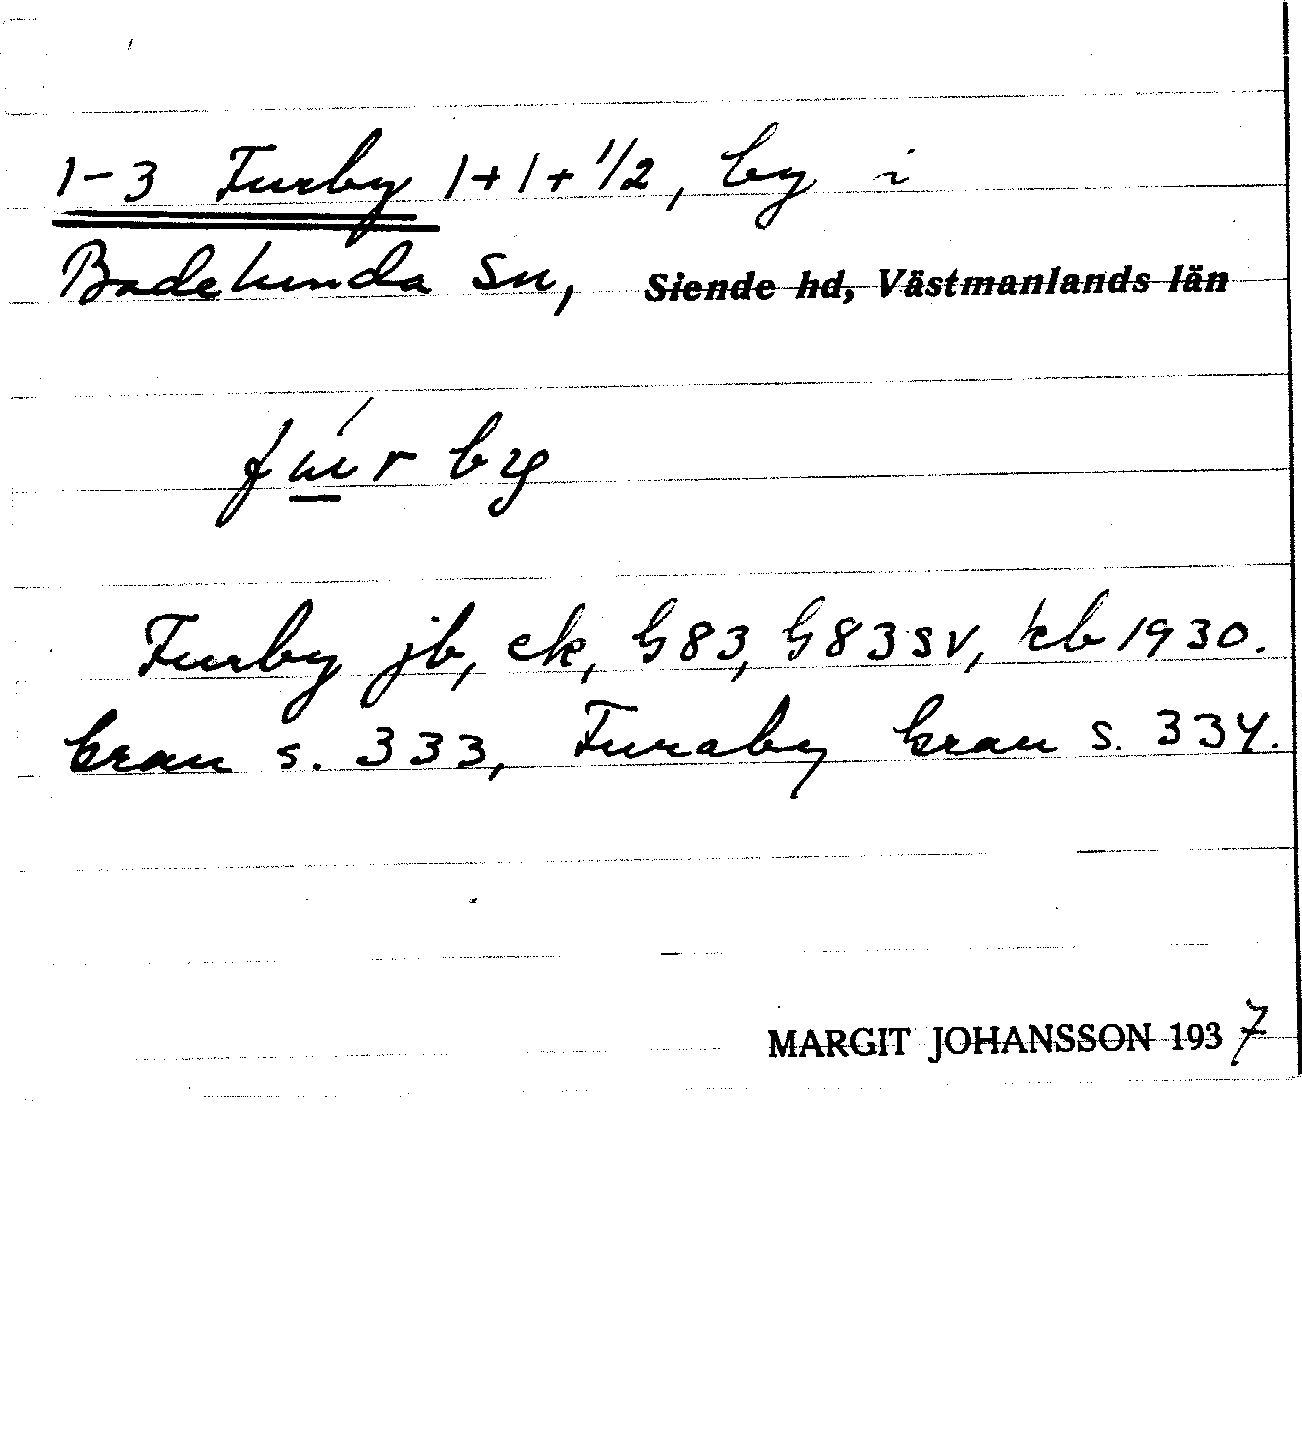 1-3 Furby 1+1+1/2, by i
Badelunda sn, Siende hd, Västmanlands län
Furby jb, ek, G83, G83SV, kb 1930.
Gran s. 333, Furaby Gran s. 334.
MARGIT JOHANSSON 1937